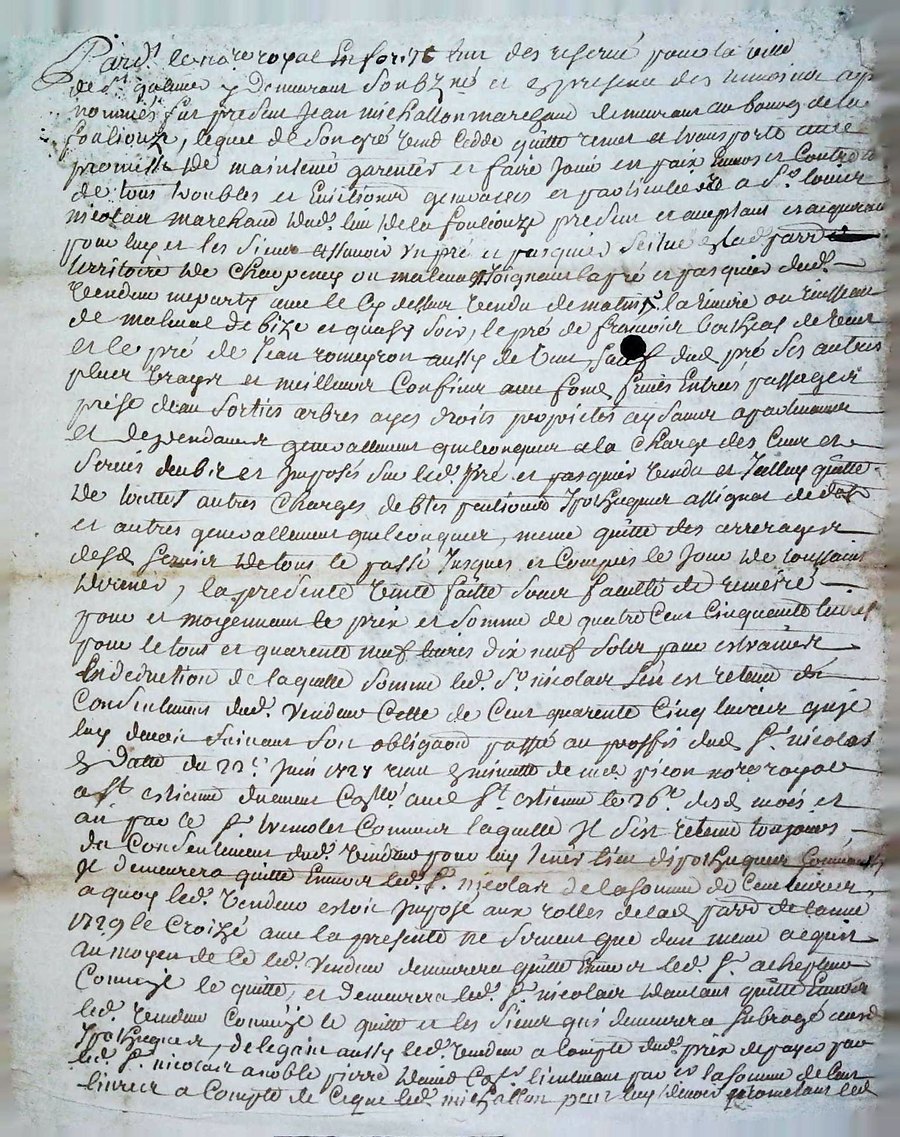 Pard. le no.re royal En foretz L'un des reservé pour la ville
de St. galmier y Demeurant Soubzné et en presence des temoins ap
nommés fut present Jean michallon marchand demeurant au bourg de la
foulliouze, lequel de Son gré vend Cedde quitte remet et transporte avec
promesse de maintenir garentir et faire Jouir en paix Envers et Contre t
de tous troubles et Evictions generales et particulieres a Sr. louis
nicolas marchand dud. lieu de la foulliouze present et acceptant et acquerant
pour luy et les Siens assavoir Un pré et pasquier Scitué en lad. parr.
territoire de et pasquier dud.
Vendeur avec le Cy dessus Vendu de matin, la riviere ou ruisseau
de malval de bize et quasy Soir, le pré de francois de Vent
et le pré de Jean romeyron aussy de Vent Sauf dud. pré Ses autres
plus Vrays et meilleurs Confins avec fond fruits Entrées passages
prise d'eau Sorties arbres ayes droits proprietes aysances apartenances
et dependances generallement quelconques a la Charge des Cens et
Servis deubz et Imposés Sur led. pré et pasquier Vendu et Jceluy quitte
de touttes autres Charges debtes pentions Jpotheques assignat de dot
et autres generallement quelconques, meme quitte des arrerages
desd. Servis de tout le passé Jusques et Compris le Jour de toussaint
dernier, la presente Vente faitte Sans faculté de remeré
pour et moyennant le prix et Somme de quatre Cent Cinquante livres
pour le tout et quarente neuf livres dix neuf Solz pour estraines
En deduction de laquelle Somme led. Sr. nicolas S'en est retenu du
Consentement dud. Vendeur Celle de Cent quarente Cinq livres qu'il
luy devoit Suivant Son obligaon passée au proffit dud. Sr. nicolas
En Datte du 22e. Juin 1727 receu En minutte de me picon no.re royal
a St. estienne duement Collé. aud. St. estienne le 26e. desd. mois et
an par le Sr. Commis laquelle Jl S'est retenu toujours
du Consentement dud. Vendeur pour luy tenir lieu d'Jpotheque Comme aussy
Jl demeurera quitte Envers led. Sr. nicolas de la somme de Cent livres
a quoy led. Vendeur estoit Jmposé aux rolles de lad. parr. de l'année
1729 le Croizé avec la presente ne Servant que d'un meme acquit
au moyen de Ce led. Vendeur demeurera quitte Envers led. Sr. achepteur
Comme Jl le quitte, et demeurera led. Sr. nicolas d'autant quitte Envers
led. Vendeur Comme Jl le quitte et les Siens qui demeurera Subrogé aux d.
Jpotheques, delegant aussy led. Vendeur a Compte dud. prix de payer par
led. Sr. nicolas a noble pierre David lieutenant par la somme de Cent
livres a Compte de Ce que led. michallon peut luy devoir promettant led.